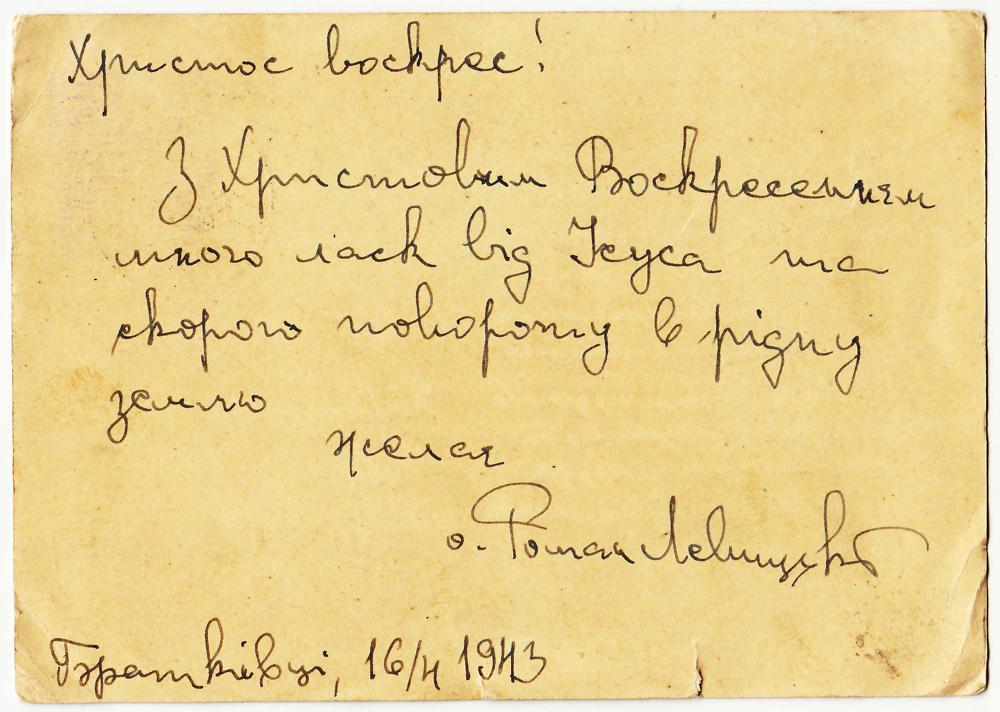 Христос воскрес!
З Христовим Воскресенням
много ласк від Ісуса та
скорого повороту в рідну
землю
желає
о. Роман Левицкі
Братківці, 16/4 1943